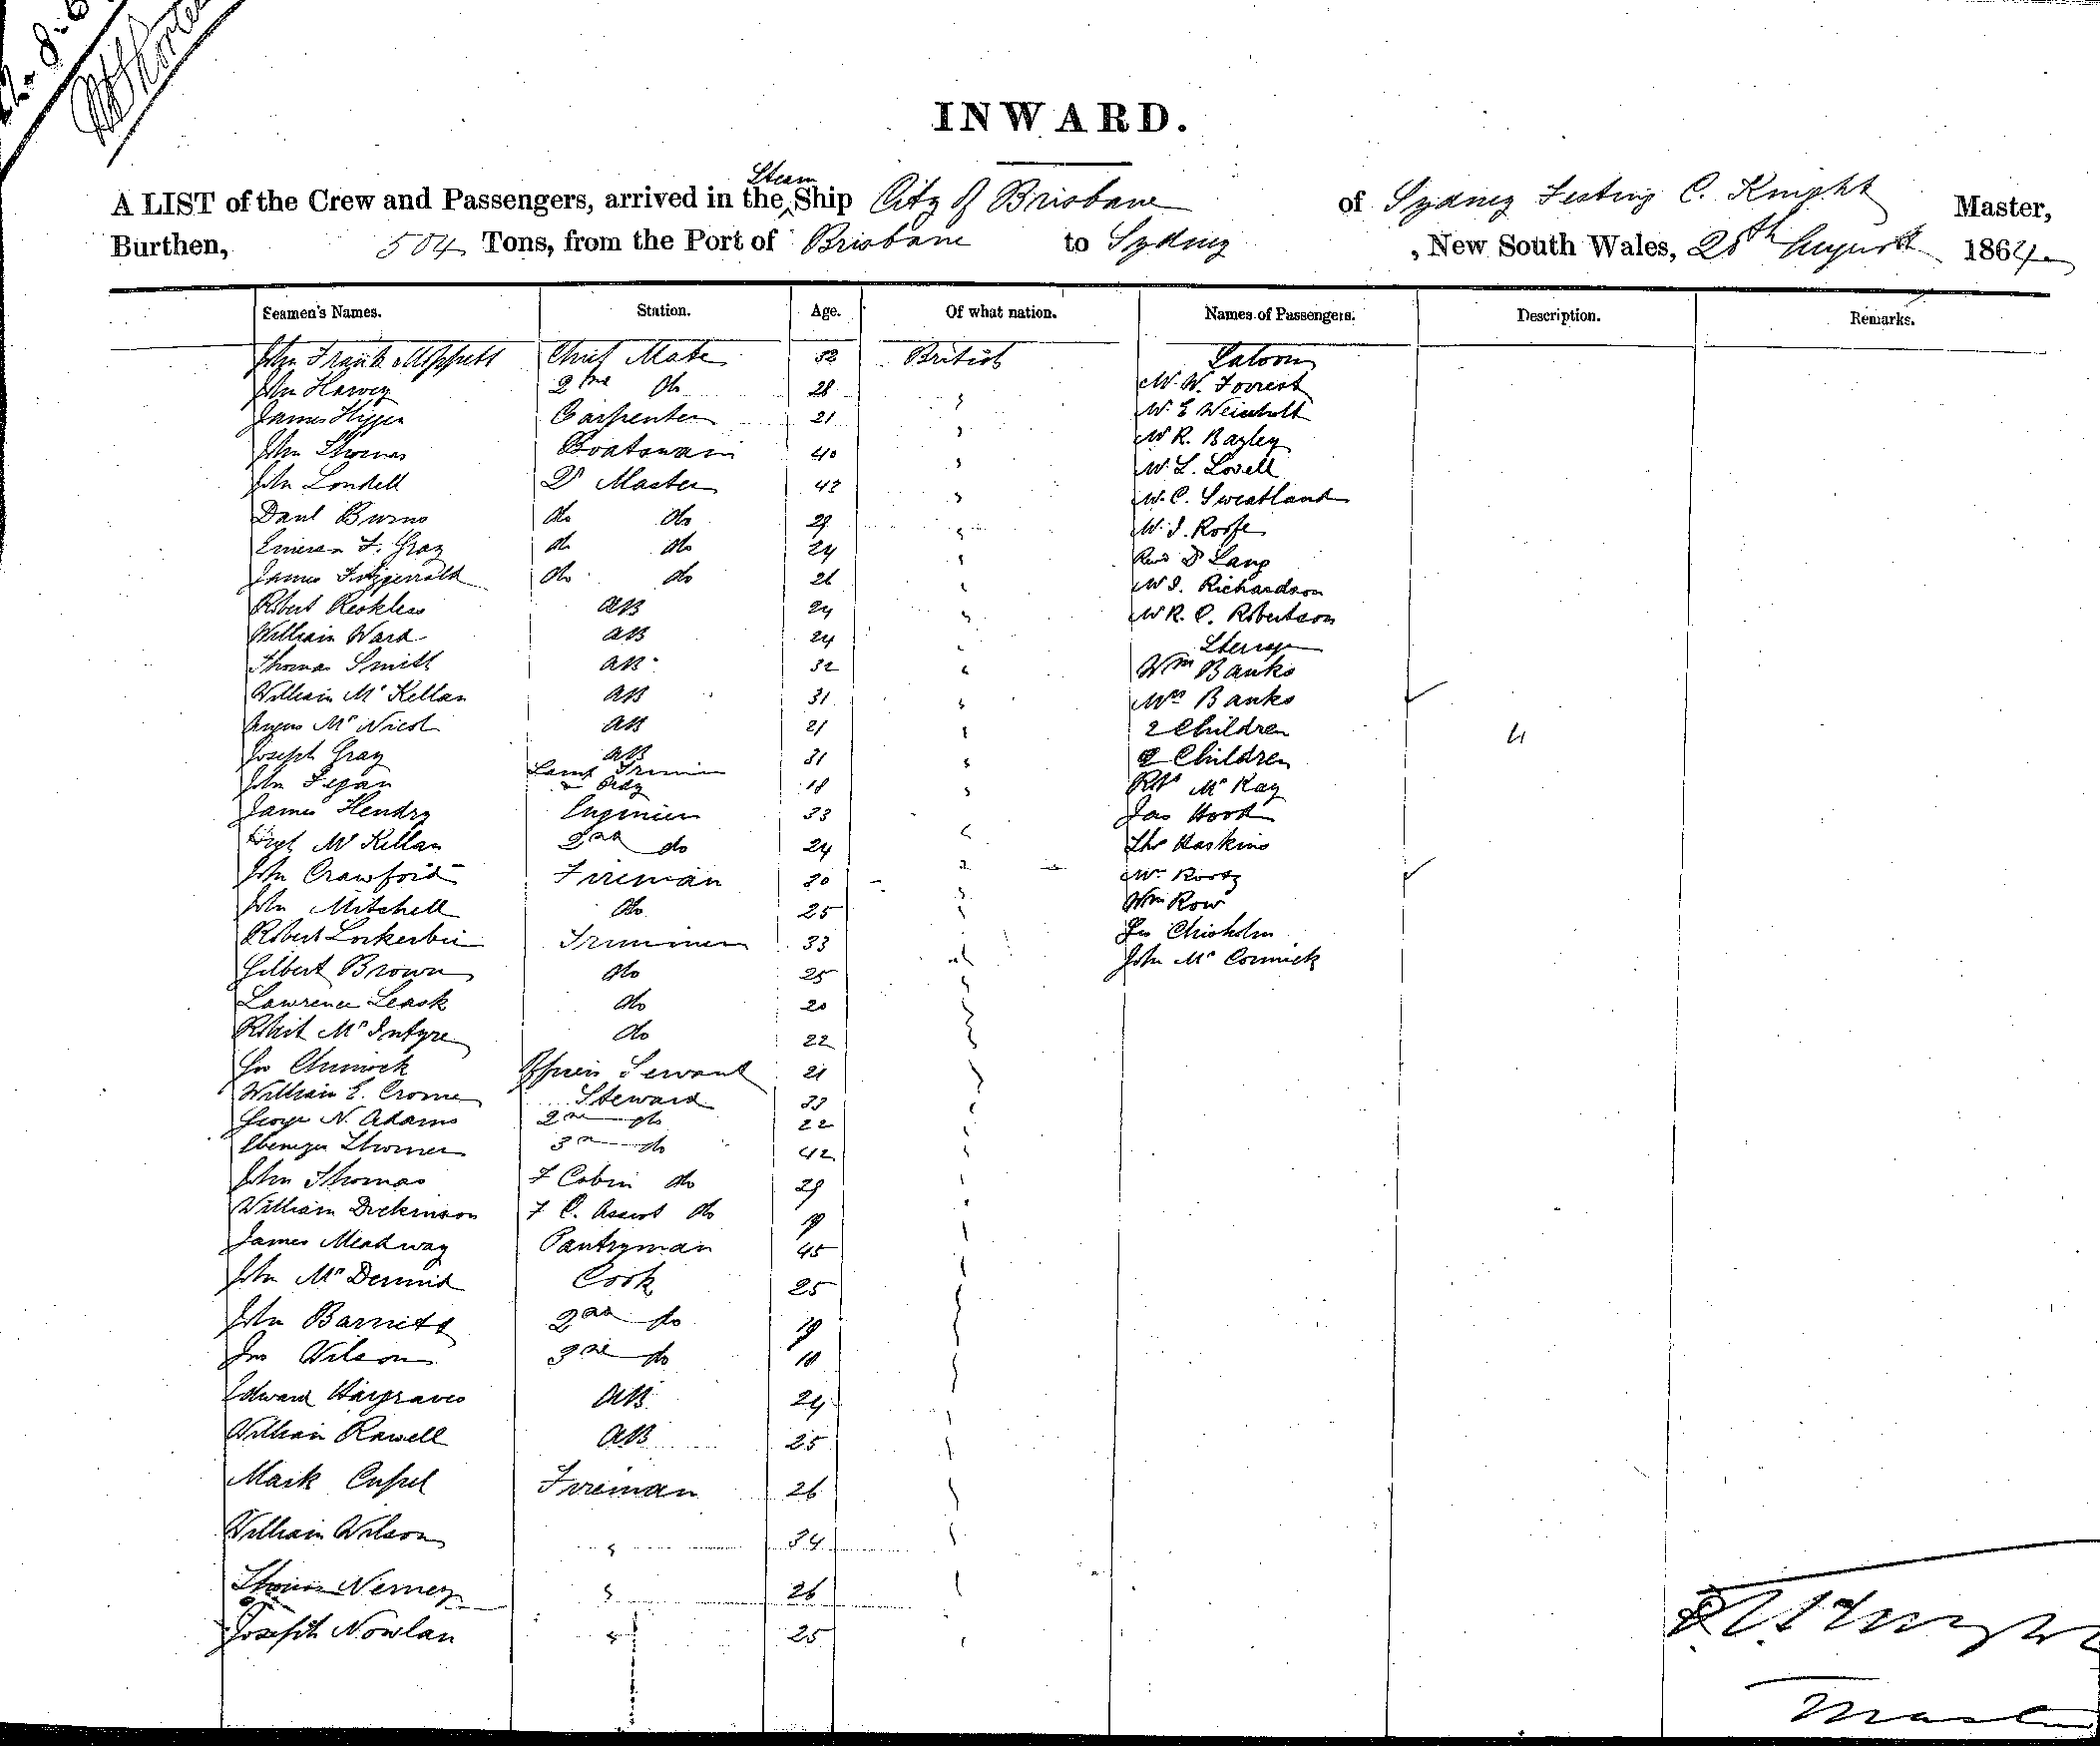 INWARD.
A LIST of the Crew and Passengers, arrived in the Steam Ship City of Brisbane of Sydney Festing C. Knight Master,
Burthen, 504 Tons, from the Port of Brisbane to Sydney , New South Wales, 28th August 1864
Seamen's Names. Station. Age. Of what nation. Names of Passengers. Description. Remarks.
John Frank Chief Mate 32 British Saloon
John Harvey 2nd do 28 " Mr W. Forrest
James Carpenter 21 " Mr E Weinholt
John Thomas Boatswain 40 " Mr R. Bayley
John Londell Qr Master 42 " Mr L. Lovell
Danl Burns do do 29 " Mr C. Sweatland
F. Gray do do 24 " Mr J. Roofe
James Fitzgerrald do do 26 " Revd Dr Lang
Robert Reckless AB 24 " Mr J. Richardson
William Ward AB 24 " Mr R. C. Robertson
Thomas Smith AB 32 " Steerage
William McKellan AB 31 " Wm Banks
Angus McNicol AB 21 " Mrs Banks
Joseph Gray AB 31 " 2 Children 4
John Fegan Lamp Trimmer 18 " 2 Children
James Hendry Engineer 33 " Robt McKay
Hugh McKellan 2nd do 24 " Jas Hood
John Crawford Fireman 30 " Thos Haskins
John Mitchell do 25 " Mrs
Robert Lockerbie Trimmer 33 " Wm Row
Gilbert Brown do 25 " Geo Chisholm
Lawrence Leask do 20 " John McCormick
Robert McIntyre do 22 "
Geo Officers Servant 21 "
William E. Crome Steward 33 "
George N. Adams 2nd do 22 "
Ebenezer 3rd do 42 "
John Thomas F Cabin do 29 "
William Dickinson F C. Assist do 19 "
James Meadway Pantryman 45 "
John McDermid Cook 25 "
John Barnett 2nd do 19 "
Jno Wilson 3rd do 18 "
Edward Hargraves AB 24 "
William Rawell AB 25 "
Mark Fireman 26 "
William Wilson " 34 "
Thomas Nerney " 26 "
Joseph Nowlan " 25 "
Master